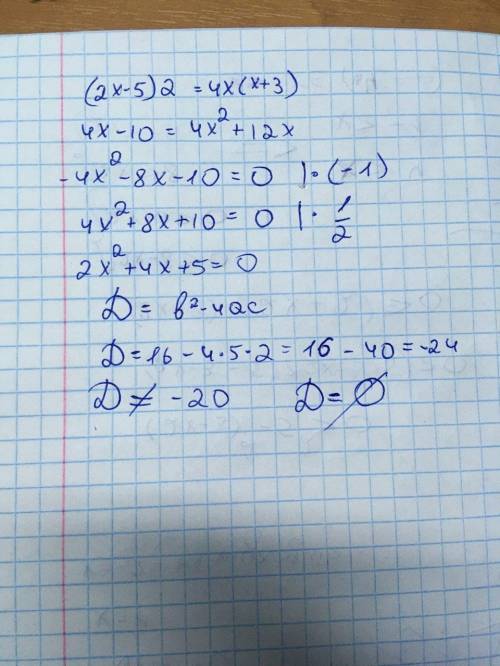 (2x-5)2 = 4x(x+3)
4x-10 = 4x²+12x
-4x²-8x-10=0 |·(-1)
4x²+8x+10=0 |·1/2
2x²+4x+5=0
D = b²-4ac
D=16-4·5·2=16-40=-24
D≠-20 D=∅